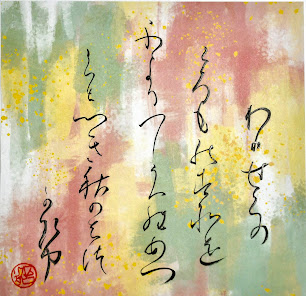 わかせこか
ころものすそを
ふきかへしうらめつ
らしき秋のはつ
かせ